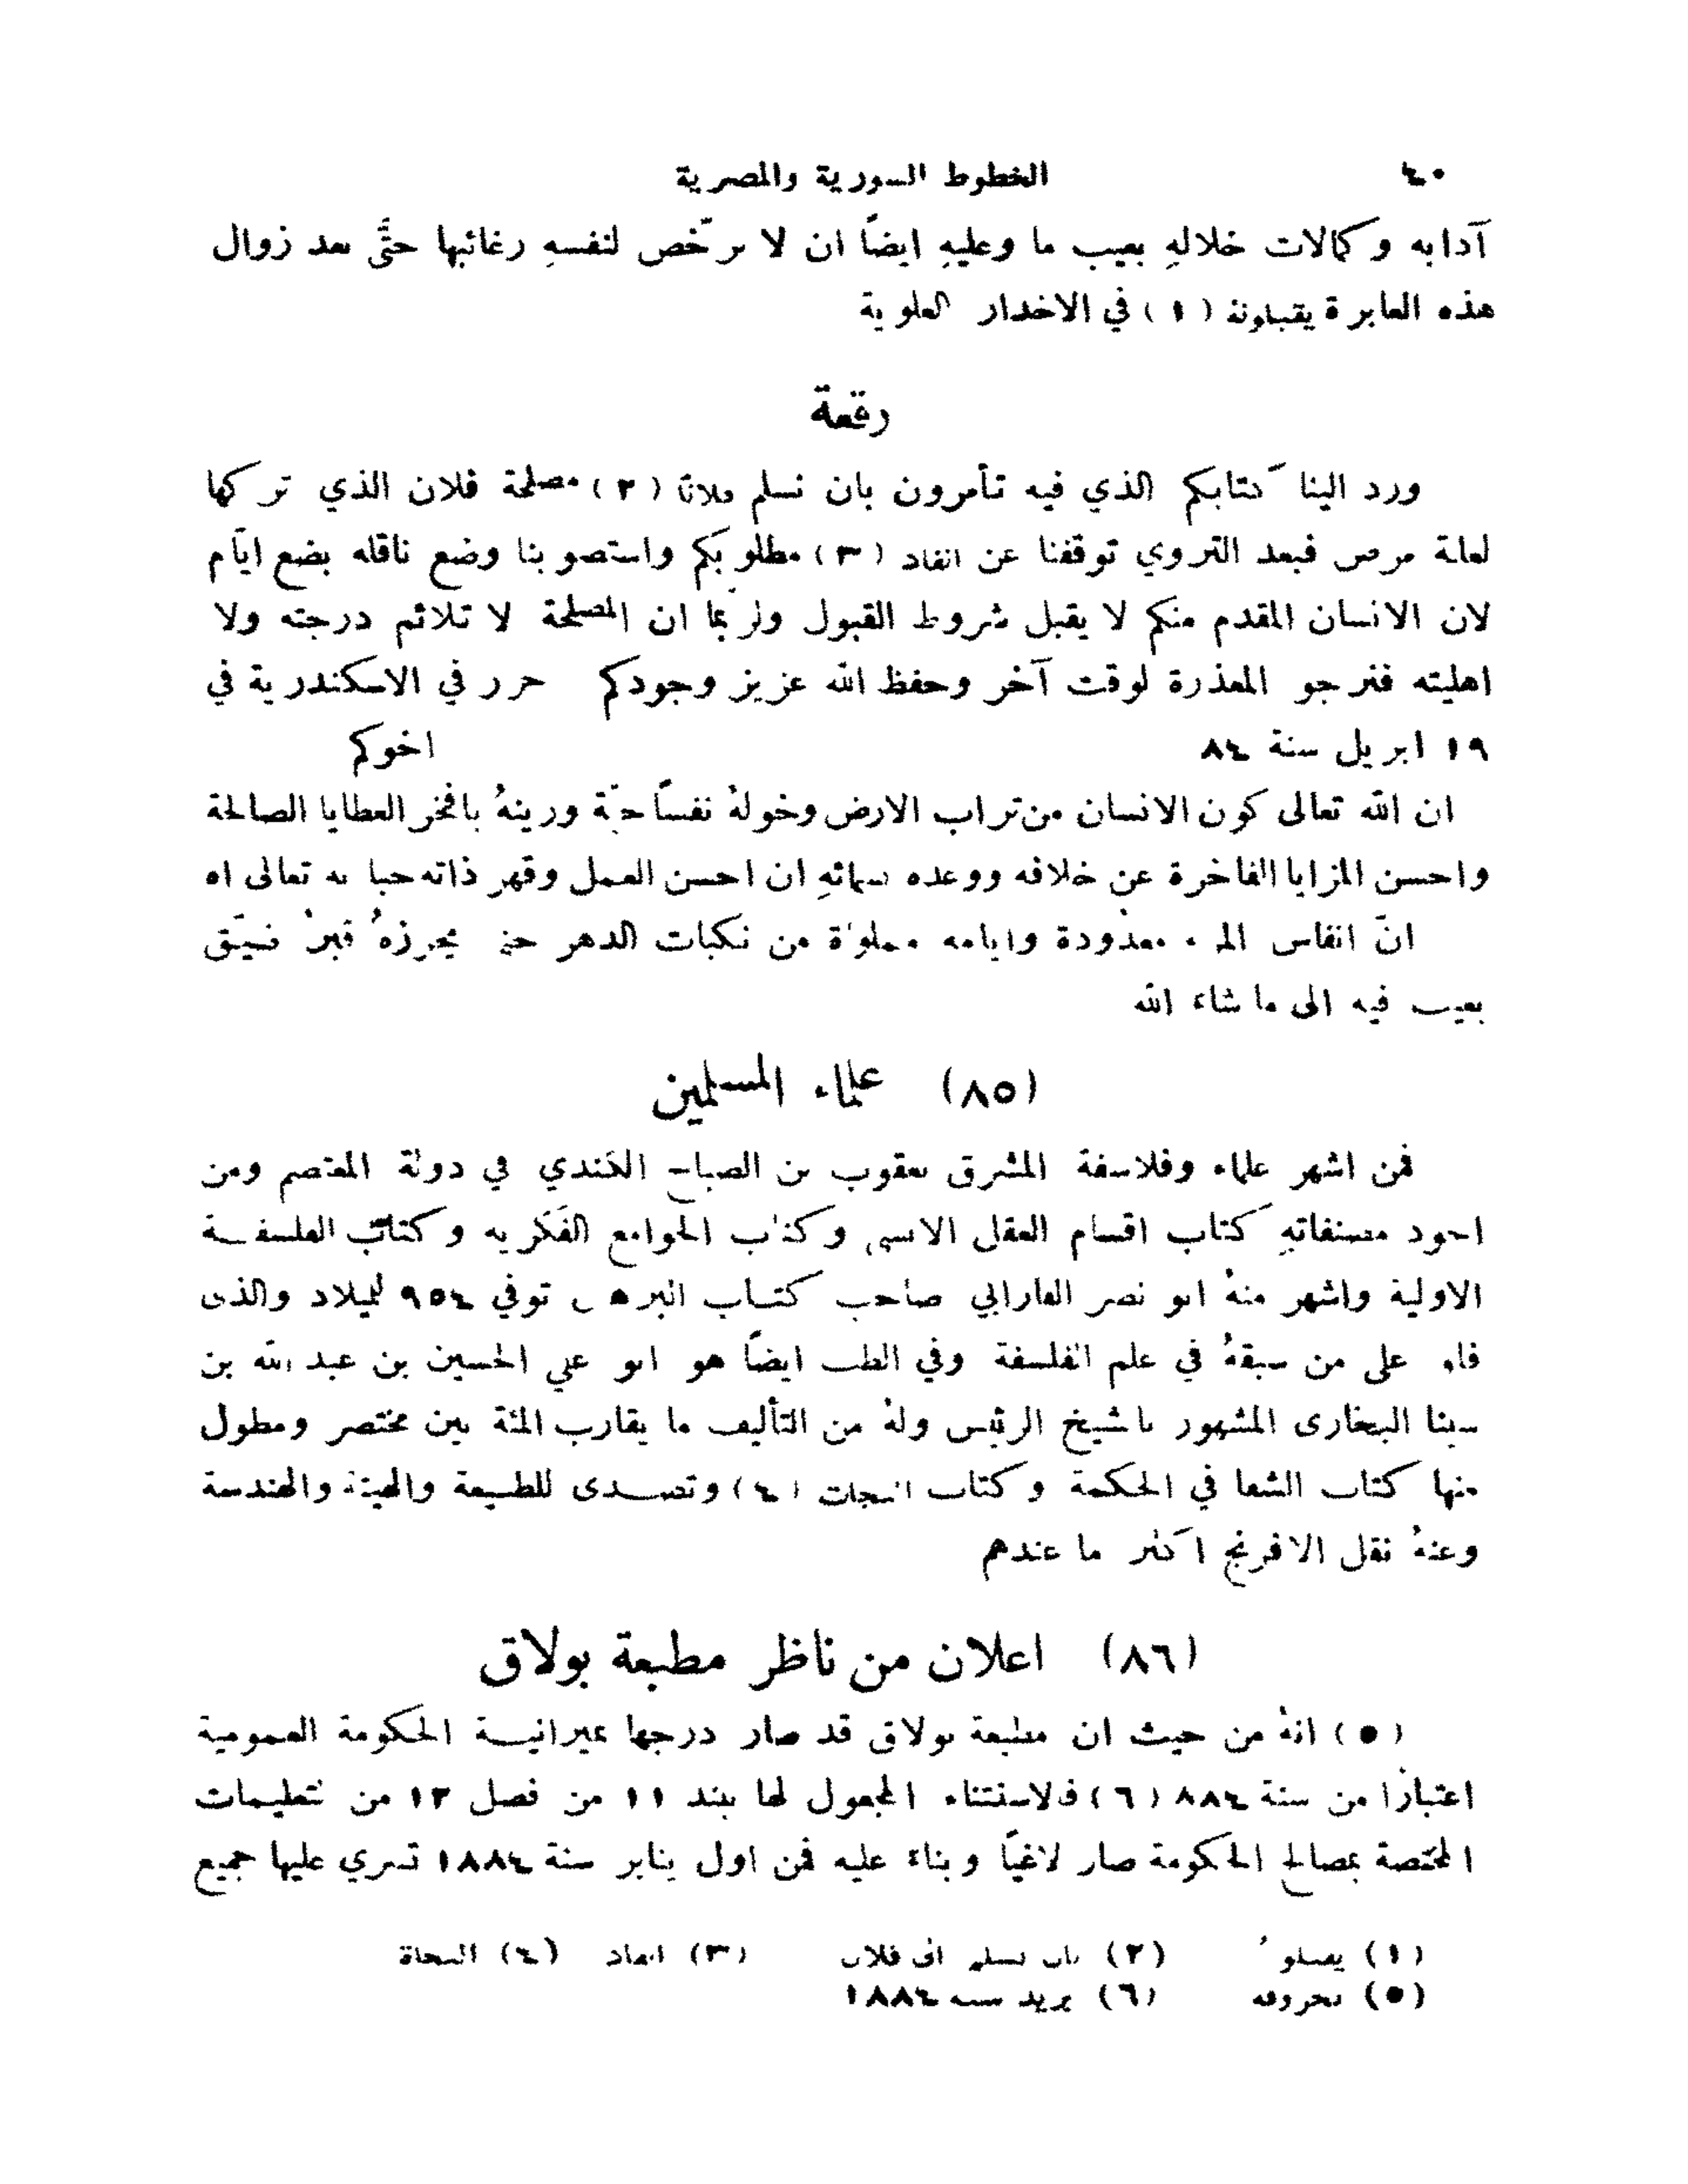 ٤٠ الخطوط السورية والمصرية
آدابه وكمالات خلالهِ بعيب ما وعليهِ ايضاً ان لا يرخّص لنفسهِ رغائبها حتَّى بعد زوال
هذه العابرة يقبلونهُ (١) في الاخدار العلوية
رقعة
ورد الينا كتابكم الذي فيه تأمرون بان نسلم فلانًا (٢) مصلحة فلان الذي تركها
لعلة مرض فبعد التروي توقفنا عن انفاد (٣) مطلوبكم واستصوبنا وضع ناقله بضع ايّام
لان الانسان المقدم منكم لا يقبل شروط القبول ولربما ان المصلحة لا تلائم درجته ولا
اهليته فنرجو المعذرة لوقت آخر وحفظ الله عزيز وجودكم حرر في الاسكندرية في
١٩ ابريل سنة ٨٤ اخوكم
ان الله تعالى كون الانسان من تراب الارض وخولهُ نفساً حيّة وزينهُ بافخر العطايا الصالحة
واحسن المزايا الفاخرة عن خلافه ووعده بسمائهِ ان احسن العمل وقهر ذاته حبا به تعالى اه
انّ انفاس المرء معدودة وايامه مملوءة من نكبات الدهر حتى يحرزهُ قبرٌ ضيّق
يغيب فيه الى ما شاء الله
(٨٥) علماء المسلمين
فمن اشهر علماء وفلاسفة المشرق يعقوب بن الصباح الكندي في دولة المعتصم ومن
اجود مصنفاتهِ كتاب اقسام العقل الانسي وكتاب الجوامع الفكريه وكتاب الفلسفة
الاولية واشهر منهُ ابو نصر الفارابي صاحب كتاب البرهان توفي ٩٥٤ للميلاد والذي
فاق على من سبقهُ في علم الفلسفة وفي الطب ايضاً هو ابو علي الحسين بن عبد الله بن
سينا البخارى المشهور بالشيخ الرئيس ولهُ من التأليف ما يقارب المئة بين مختصر ومطول
منها كتاب الشفا في الحكمة وكتاب النجات (٤) وتصدى للطبيعة والهيئة والهندسة
وعنهُ نقل الافرنج اكثر ما عندهم
(٨٦) اعلان من ناظر مطبعة بولاق
(٥) انهُ من حيث ان مطبعة بولاق قد صار درجها بميرانية الحكومة العمومية
اعتبارًا من سنة ٨٨٤ (٦) فالاستثناء المجعول لها ببند ١١ من فصل ١٣ من تعليمات
المختصة بمصالح الحكومة صار لاغيًا وبناء عليه فمن اول يناير سنة ١٨٨٤ تسري عليها جميع
(١) يصلو (٢) بان نسلم الى فلان (٣) انفاذ (٤) النجاة
(٥) بحروفه (٦) يريد سنة ١٨٨٤